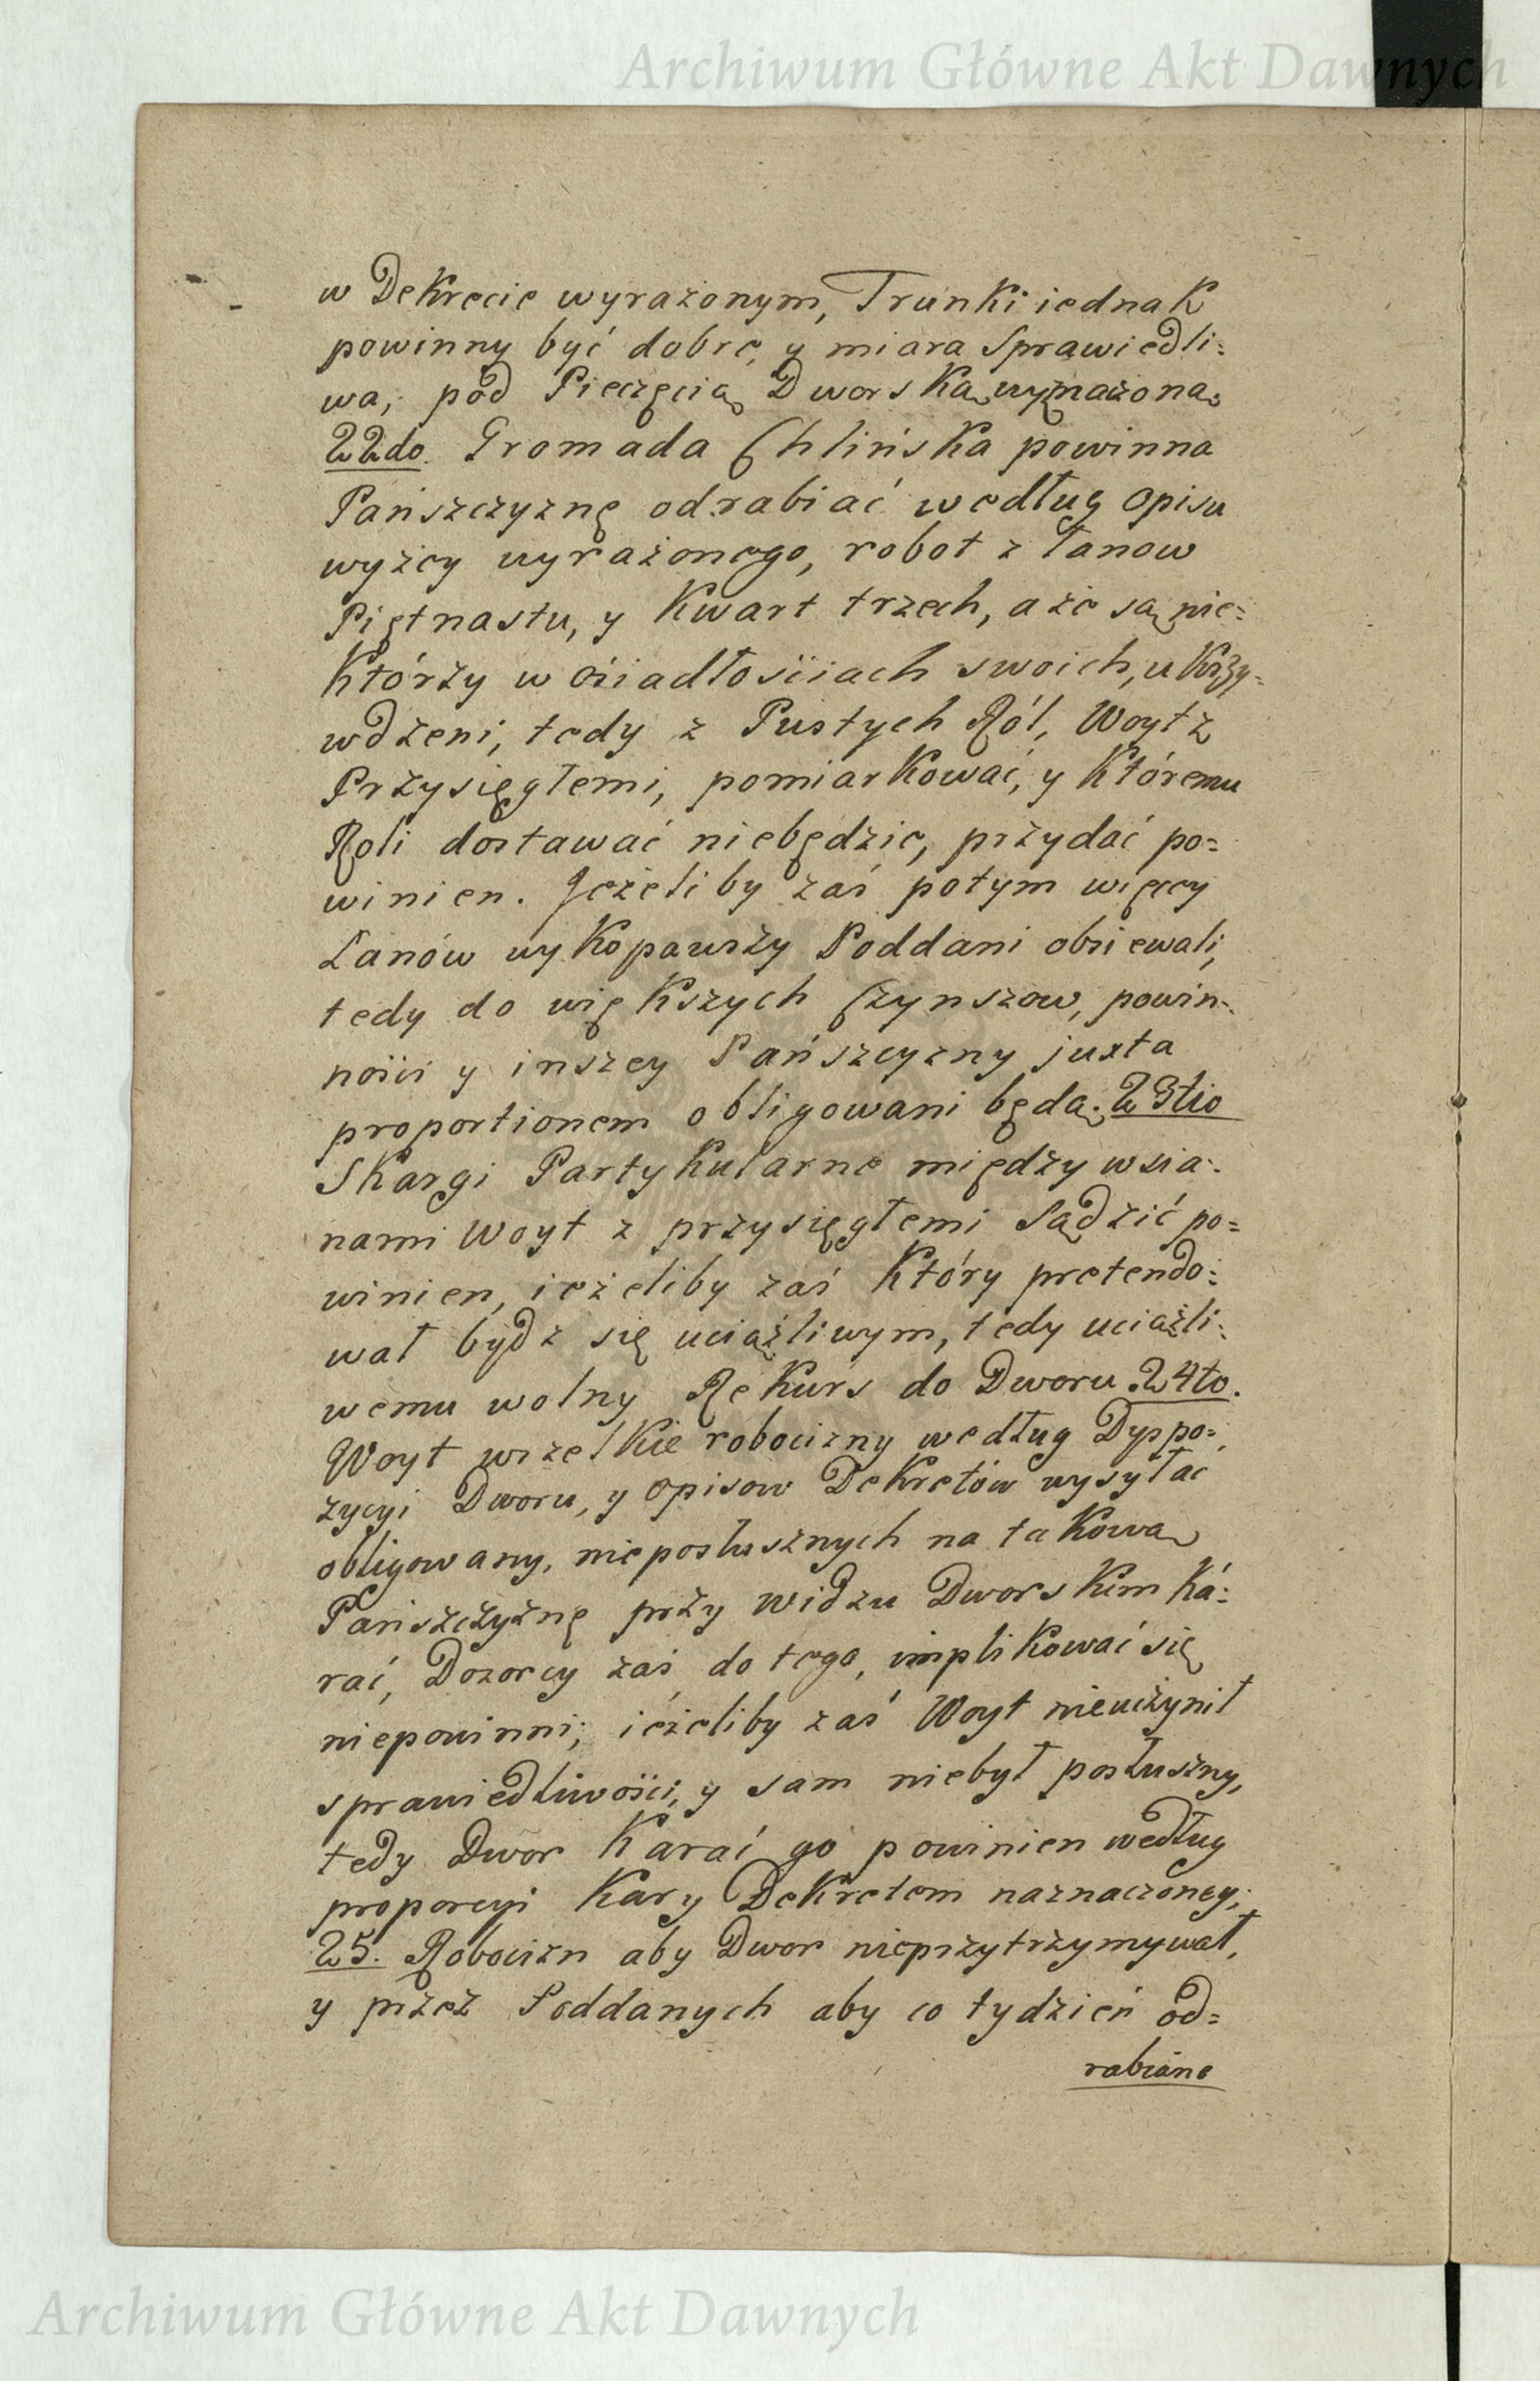 Archiwum Główne Akt Dawnych
w Dekrecie wyrażonym, Trunki iednak
powinny być dobre, y miara Sprawiedli:
wa, pod Pieczęcią Dworską wymażona.
22do. Gromada Chlińska powinna
Pańszczyznę odrabiać według opisu
wyżey wyrażonego, robot z Łanow
Piętnastu, y Kwart trzech, a że są nie:
Którzy w Ósiadłościach swoich, ukrzy:
wdzeni, tedy z Pustych Ról, Woyt z
Przysięgłemi, pomiarkować, y Któremu
Roli dostawać niebędzie, przydać po=
winien. Jeżeliby zaś potym więcey
Łanów wykopawszy Poddani obsiewali,
tedy do większych Czynszow, powin:
ności y inszey Pańszcyzny juxta
proportionem obligowani będą. 23tio
Skargi Partykularne między wsia:
nami Woyt z przysięgłemi Sądzić po=
winien, ieżeliby zaś Który pretendo:
wał bydz się uciążliwym, tedy uciążli:
wemu wolny Rekurs do Dworu. 24to.
Woyt wszelkie robocizny według Dyspo:
zycyi Dworu, y opisow Dekretów wysyłać
obligowany, nieposłusznych na takową
Pańszczyznę przy widzu Dworskim Ká:
rać, Dozorcy zaś do tego, implikować się
niepowinni; ieżeliby zaś Woyt nieuczynił
sprawiedliwości, y sam niebył posłuszny,
tedy Dwor Karać go powinien według
proporcyi Kary Dekretem naznaczoney;
25. Robocizn aby Dwor nieprzytrzymywał,
y przez Poddanych aby co tydzień od=
rabiane
Archiwum Główne Akt Dawnych